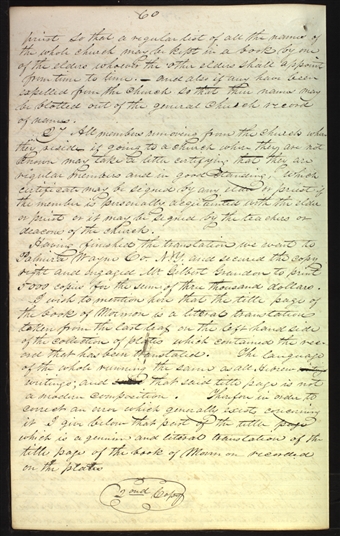 60
priest so that a regular list of all the names of
the whole church may be kept in a book by one
of the elders whoever the other elders shall appoint
from time to time. — and also if any have been
expelled from the church so that their name may
be blotted out of the general church record
of names.
27. All members removing from the church where
they reside if going to a church where they are not
known may take a letter certifying that they are
regular members and in good standing, which
certificate may be signed by any elder or priest if
the member is personally acquainted with the elder
or priest or it may be signed by the teachers or
deacons of the church.
Having finished the translation we went to
Palmira Wayne Co. N.Y. and secured the copy
right and engaged Mr Egbert Grandon to print
5000 copies for the sum of three thousand dollars.
I wish to mention here that the title page of
the book of Mormon is a literal translation
taken from the last leaf on the left hand side
of the collection of plates which contained the rec
ord that has been translated. The language
of the whole running the same as all Hebrew
writings; and that said title page is not
a modern composition. Therefor in order to
correct an error which generally exists concerning
it I give below that part of the title page
which is a genuine and literal translation of the
title page of the book of Mormon recorded
on the plates
2ond Copy